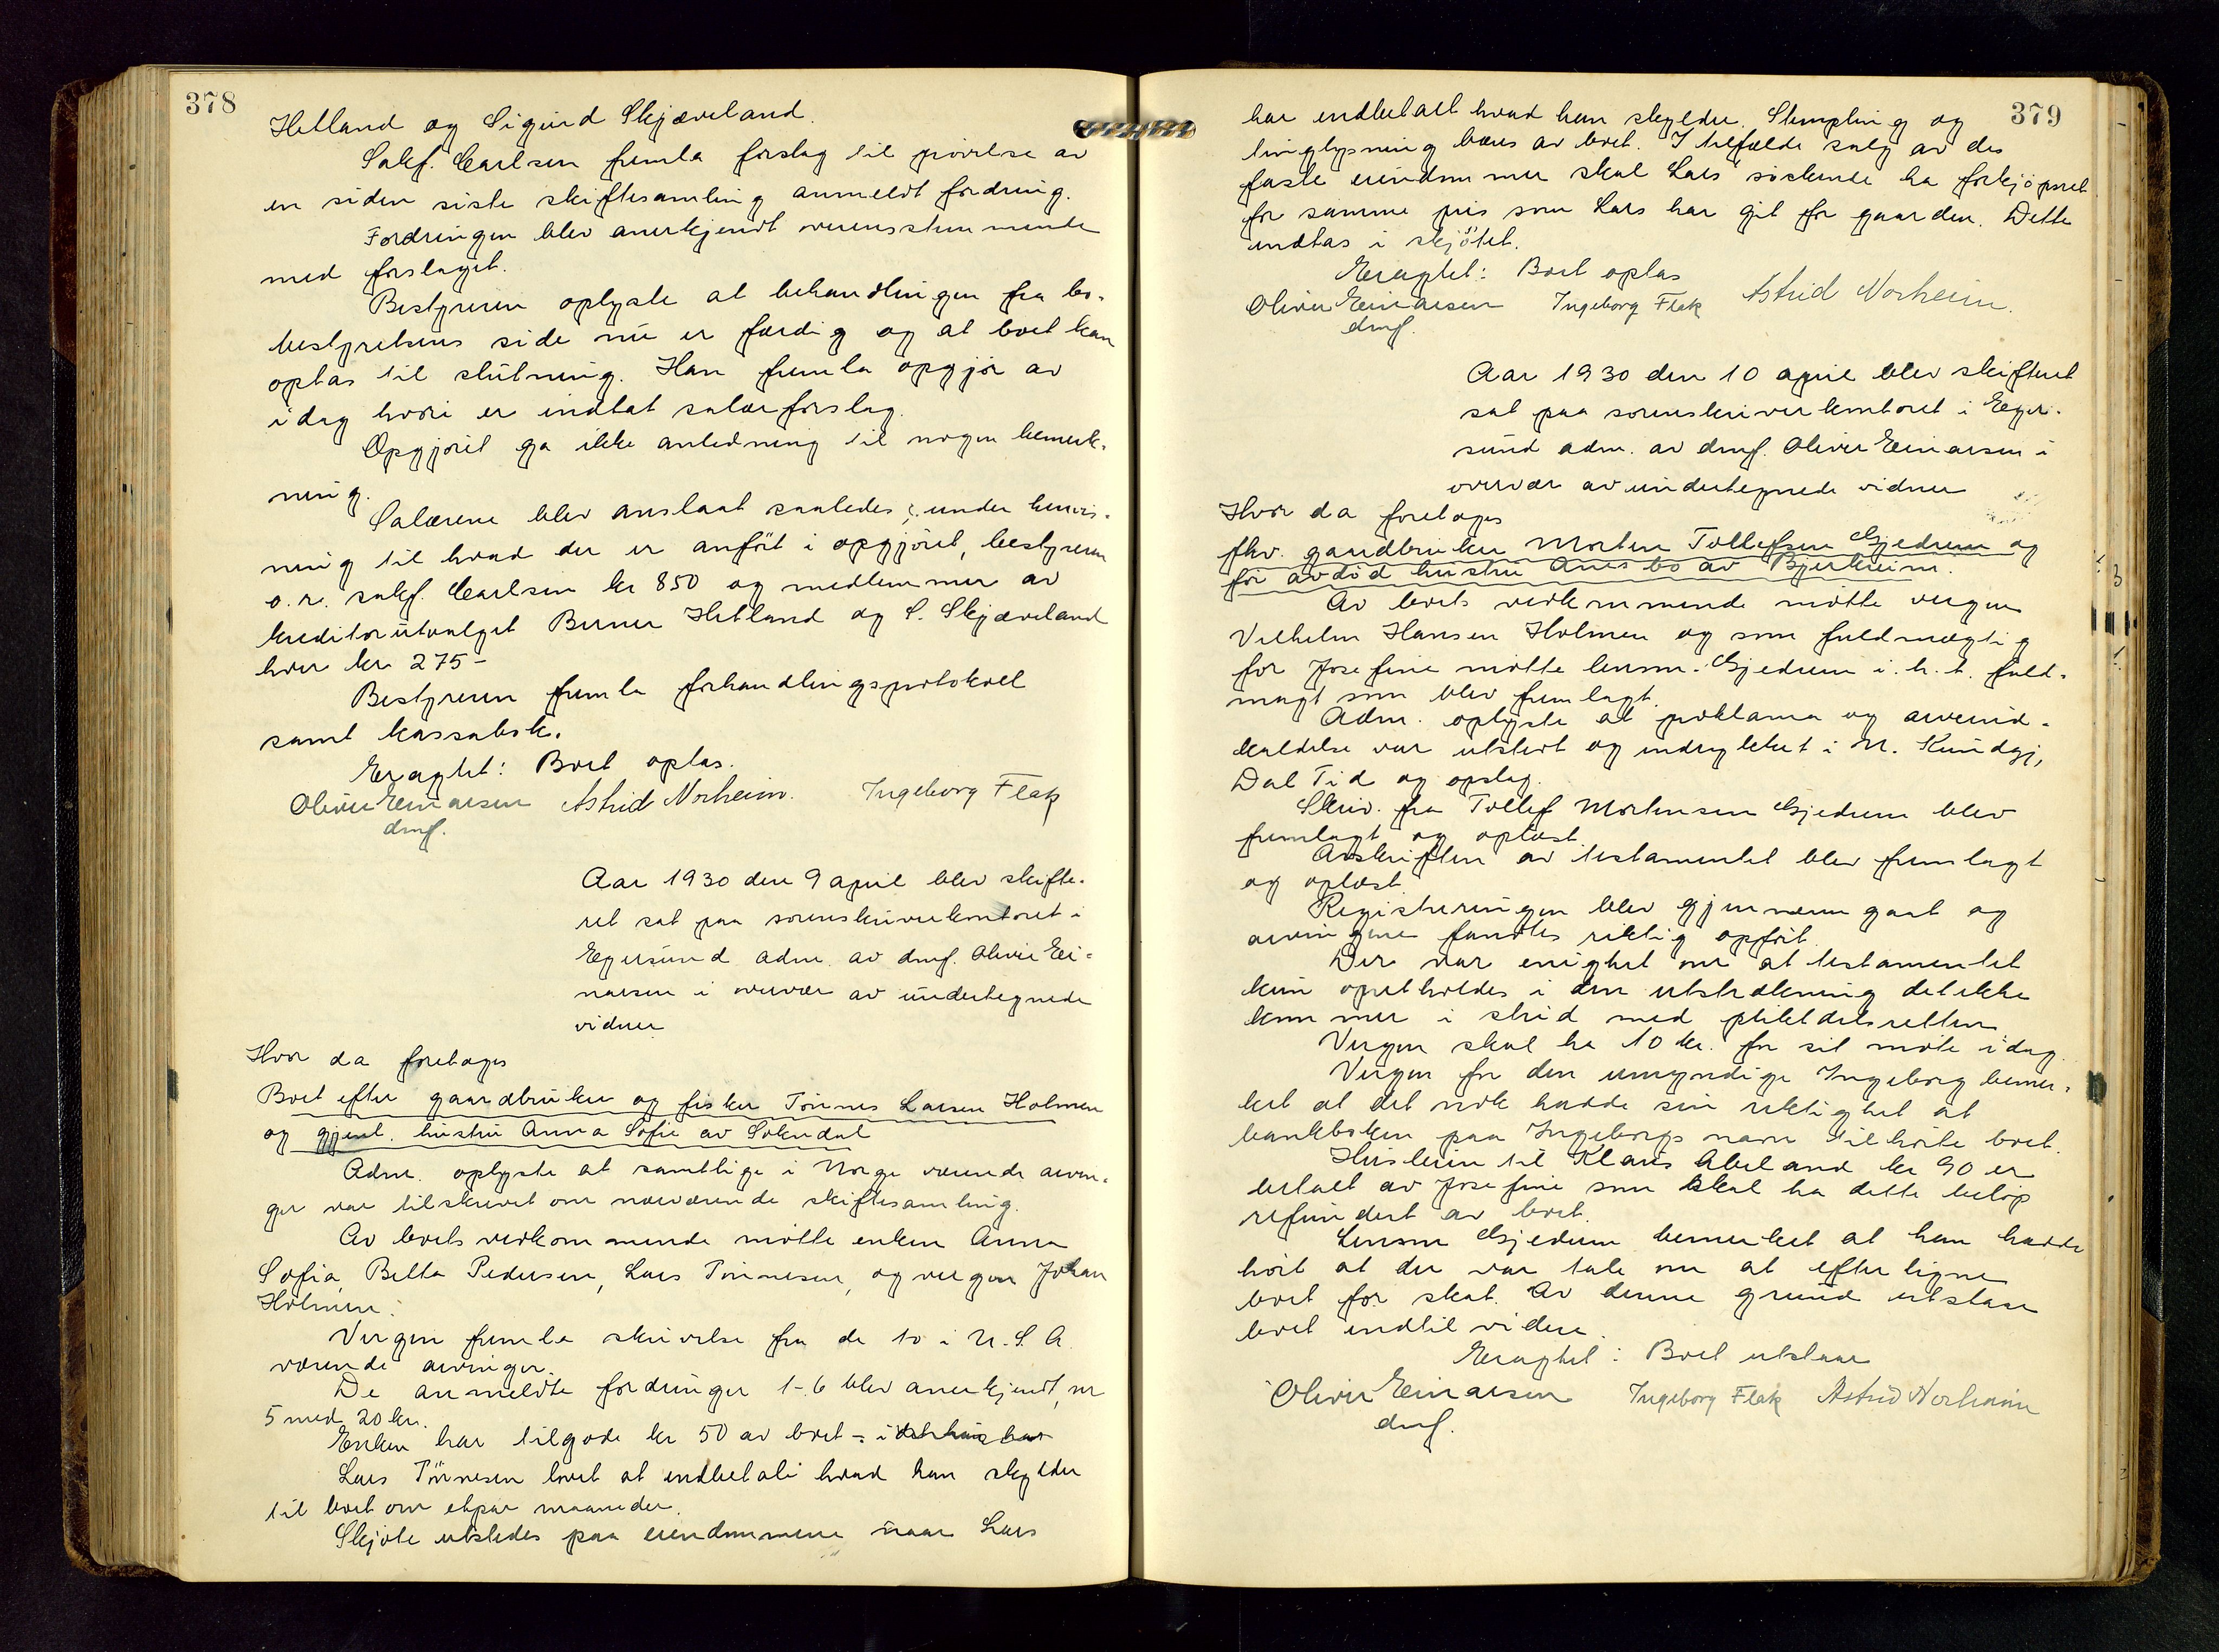 378
Hetland og Sigurd Skjæveland.
Sakf. Carlsen fremla forslag til prövelse av
en siden siste skiftesamling anmeldt fordring.
Fordringen blev anerkjendt overensstemmende
med forslaget.
Bestyreren oplyste at behandlingen fra bo-
bestyrelsens side nu er færdig og at boet kan
optas til slutning. Han fremla opgjör av
idag hvori er indtat salærforslag.
Opgjöret ga ikke anledning til nogen bemerk-
ning.
Salærene blev anslaat saaledes, under henvis-
ning til hvad der er anfört i opgjöret, bestyreren
o.r. sakf. Carlsen kr 850 og medlemmer av
kreditorutvalget Berner Hetland og S. Skjæveland
hver kr 275-
Bestyreren fremla forhandlingsprotokoll
samt kassabok.
Eragtet: Boet optas.
Oliver Einarsen Astrid Norheim. Ingeborg Flak
dmf.
Aar 1930 den 9 april blev skifte-
ret sat paa sorenskriverkontoret i
Egersund adm. av dmf. Oliver Ei-
narsen i overvær av undertegnede
vidner
Hvor da foretoges
Boet efter gaardbruker og fisker Tönnes Larsen Holmen
og gjenl. hustru Anna Sofie av Sokndal
Adm. oplyste at samtlige i Norge værende arvin-
ger var tilskrevet om nærværende skiftesamling.
Av boets vedkommende mötte enken Anna
Sofia, Bella Pedersen, Lars Tönnesen, og vergen Johan
Holmen.
Vergen fremla skrivelse fra de to i U.S.A.
værende arvinger.
De anmeldte fordringer 1-6 blev anerkjendt, nr
5 med 20 kr.
Enken har tilgode kr 50 av boet
Lars Tönnesen lovet at indbetale hvad han skylder
til boet om etpar maaneder.
Skjöte utstedes paa eiendommene naar Lars
379
har indbetalt hvad han skylder. Stempling og
tinglysning bæres av boet. I tilfælde salg av de
faste eiendommer skal Lars' söskende ha forkjöpsret
for samme pris som Lars har git for gaarden. Dette
indtas i skjötet.
Eragtet: Boet optas
Oliver Einarsen Ingeborg Flak Astrid Norheim.
dmf.
Aar 1930 den 10 april blev skifteret
sat paa sorenskriverkontoret i Eger-
sund adm. av dmf. Oliver Einarsen i
overvær av undertegnede vidner
Hvor da foretoges
fhv. gaardbruker Morten Tollefsen Gjedrem og
för avdöd hustru Anes bo av Bjerkreim.
Av boets vedkommende mötte vergen
Vilhelm Hansen Holmen og som fuldmægtig
for Josefine mötte lensm. Gjedrem i.h.t. fuld-
magt som blev fremlagt.
Adm. oplyste at proklama og arveind-
kaldelse var utstedt og indrykket i N. Kundgj,
Dal Tid og opslag.
Skriv. fra Tollef Mortensen Gjedrem blev
fremlagt og oplæst.
Avskriften av testamentet blev fremlagt
og oplæst.
Registreringen blev gjennemgaat og
arvingene fandtes riktig opfört.
Der var enighet om at testamentet
kun opretholdes i den utstrækning det ikke
kommer i strid med pliktdelsretten.
Vergen skal ha 10 kr. for sit möte idag.
Vergen for den umyndige Ingeborg bemer-
ket at det nok hadde sin riktighet at
bankboken paa Ingeborgs navn tilhörte boet.
Husleien til Klaus Abeland kr 90 er
betalt av Josefine som skal ha dette belöp
refundert av boet.
Lensm Gjedrem bemerket at han hadde
hört at der var tale om at efterligne
boet for skat. Av denne grund utstaar
boet indtil videre.
Eragtet: Boet utstaar
Oliver Einarsen Ingeborg Flak Astrid Norheim
dmf.